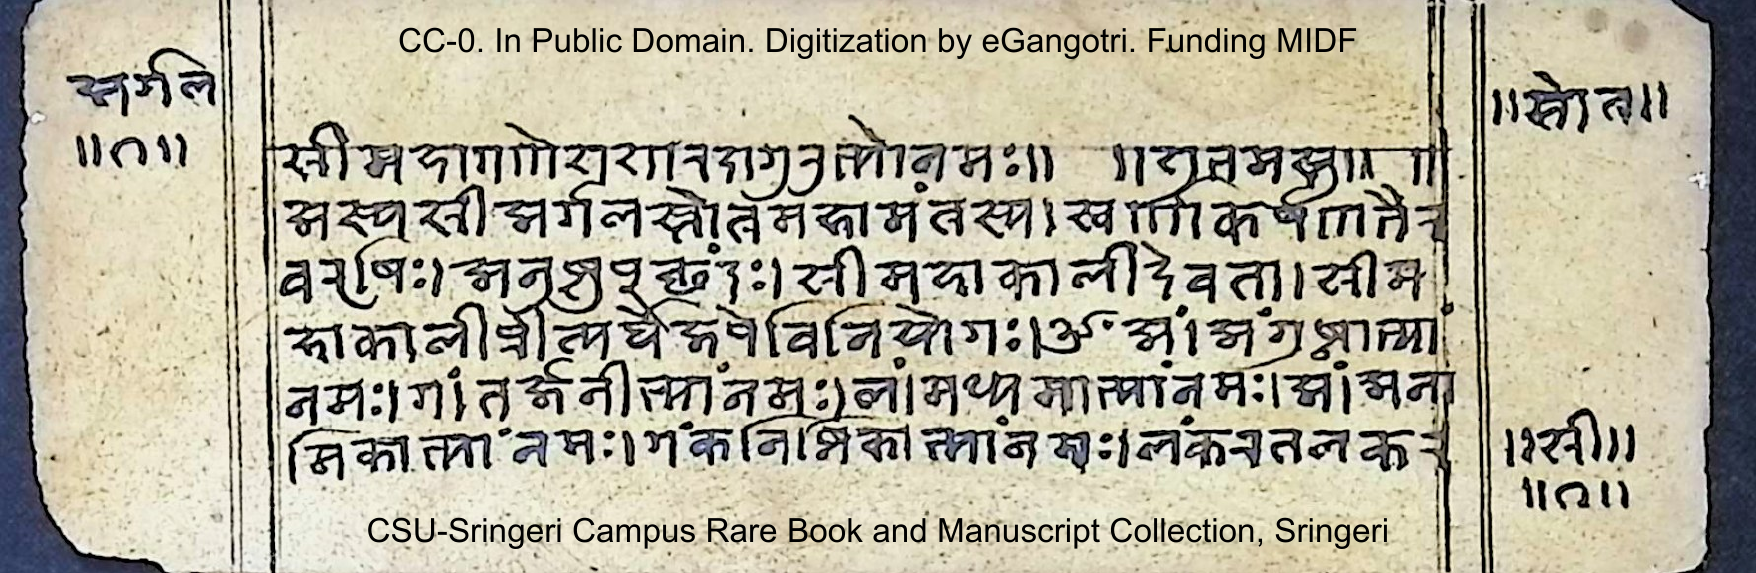 CC-0. In Public Domain. Digitization by eGangotri. Funding MIDF
अर्गल
॥१॥
॥स्तोत॥
स्रीमहागणेशशारदागुरुत्भोनमः॥ ॥शुतमस्तु॥ ॥
अस्य स्री अर्गलस्तोत्रमहामंतस्य। स्वर्णाकर्षणतैर
वरषिः। अनुष्टुप्छंदः। स्रीमहाकालीदेवता। स्रीम
हाकालीप्रीत्यर्थे विनियोगः। ॐ आं। अंगुष्ठात्भां
नमः। गां तर्जनीत्भांनमः। लां। मध्यमात्भांनमः। आं। अना
मिकात्भांनमः। गं कनिष्ठिकात्भांनमः। लं करतलकर
॥स्री॥
॥१॥
CSU-Sringeri Campus Rare Book and Manuscript Collection, Sringeri